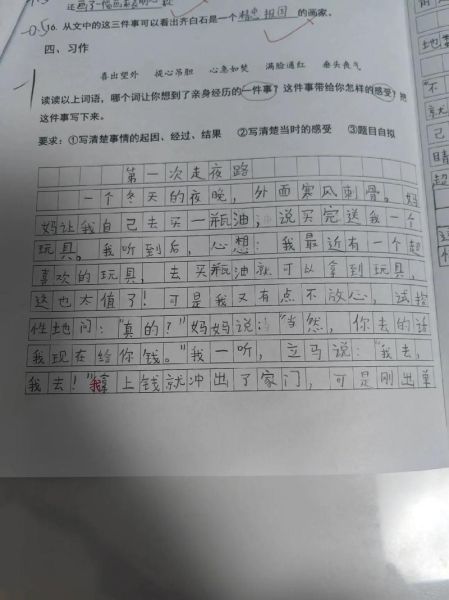 还画了一幅画来表明心
-0.5 16. 从文中的这三件事可以看出齐白石是一个 精忠报国 的画家。
四、习作
喜出望外 提心吊胆 心急如焚 满脸通红 垂头丧气
读读以上词语，哪个词让你想到了亲身经历的一件事？这件事带给你怎样的感受？把
这件事写下来。
要求：①写清楚事情的起因、经过、结果 ②写清楚当时的感受 ③题目自拟
第一次走夜路
一个冬天的夜晚，外面寒风刺骨。妈
妈让我自己去买一瓶油，说买完送我一个
玩具。我听到后，心想：我最近有一个超
喜欢的玩具，去买瓶油就可以拿到玩具，
这也太值了！可是我又有点不放心，试探
性地问：“真的？”妈妈说：“当然，你去的话
我现在给你钱。”我一听，立马说：“我去，
我去！”我拿上钱就冲出了家门，可是刚出单
地
“不
就
己
睛
超